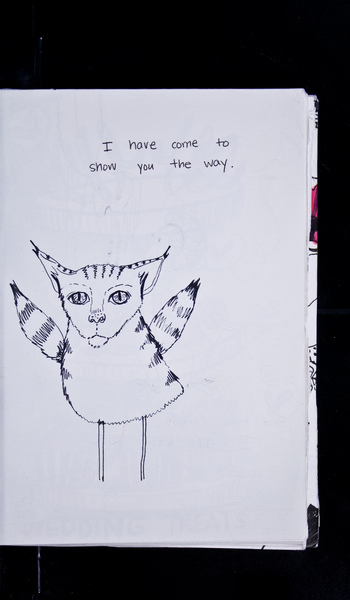 I have come to
show you the way.